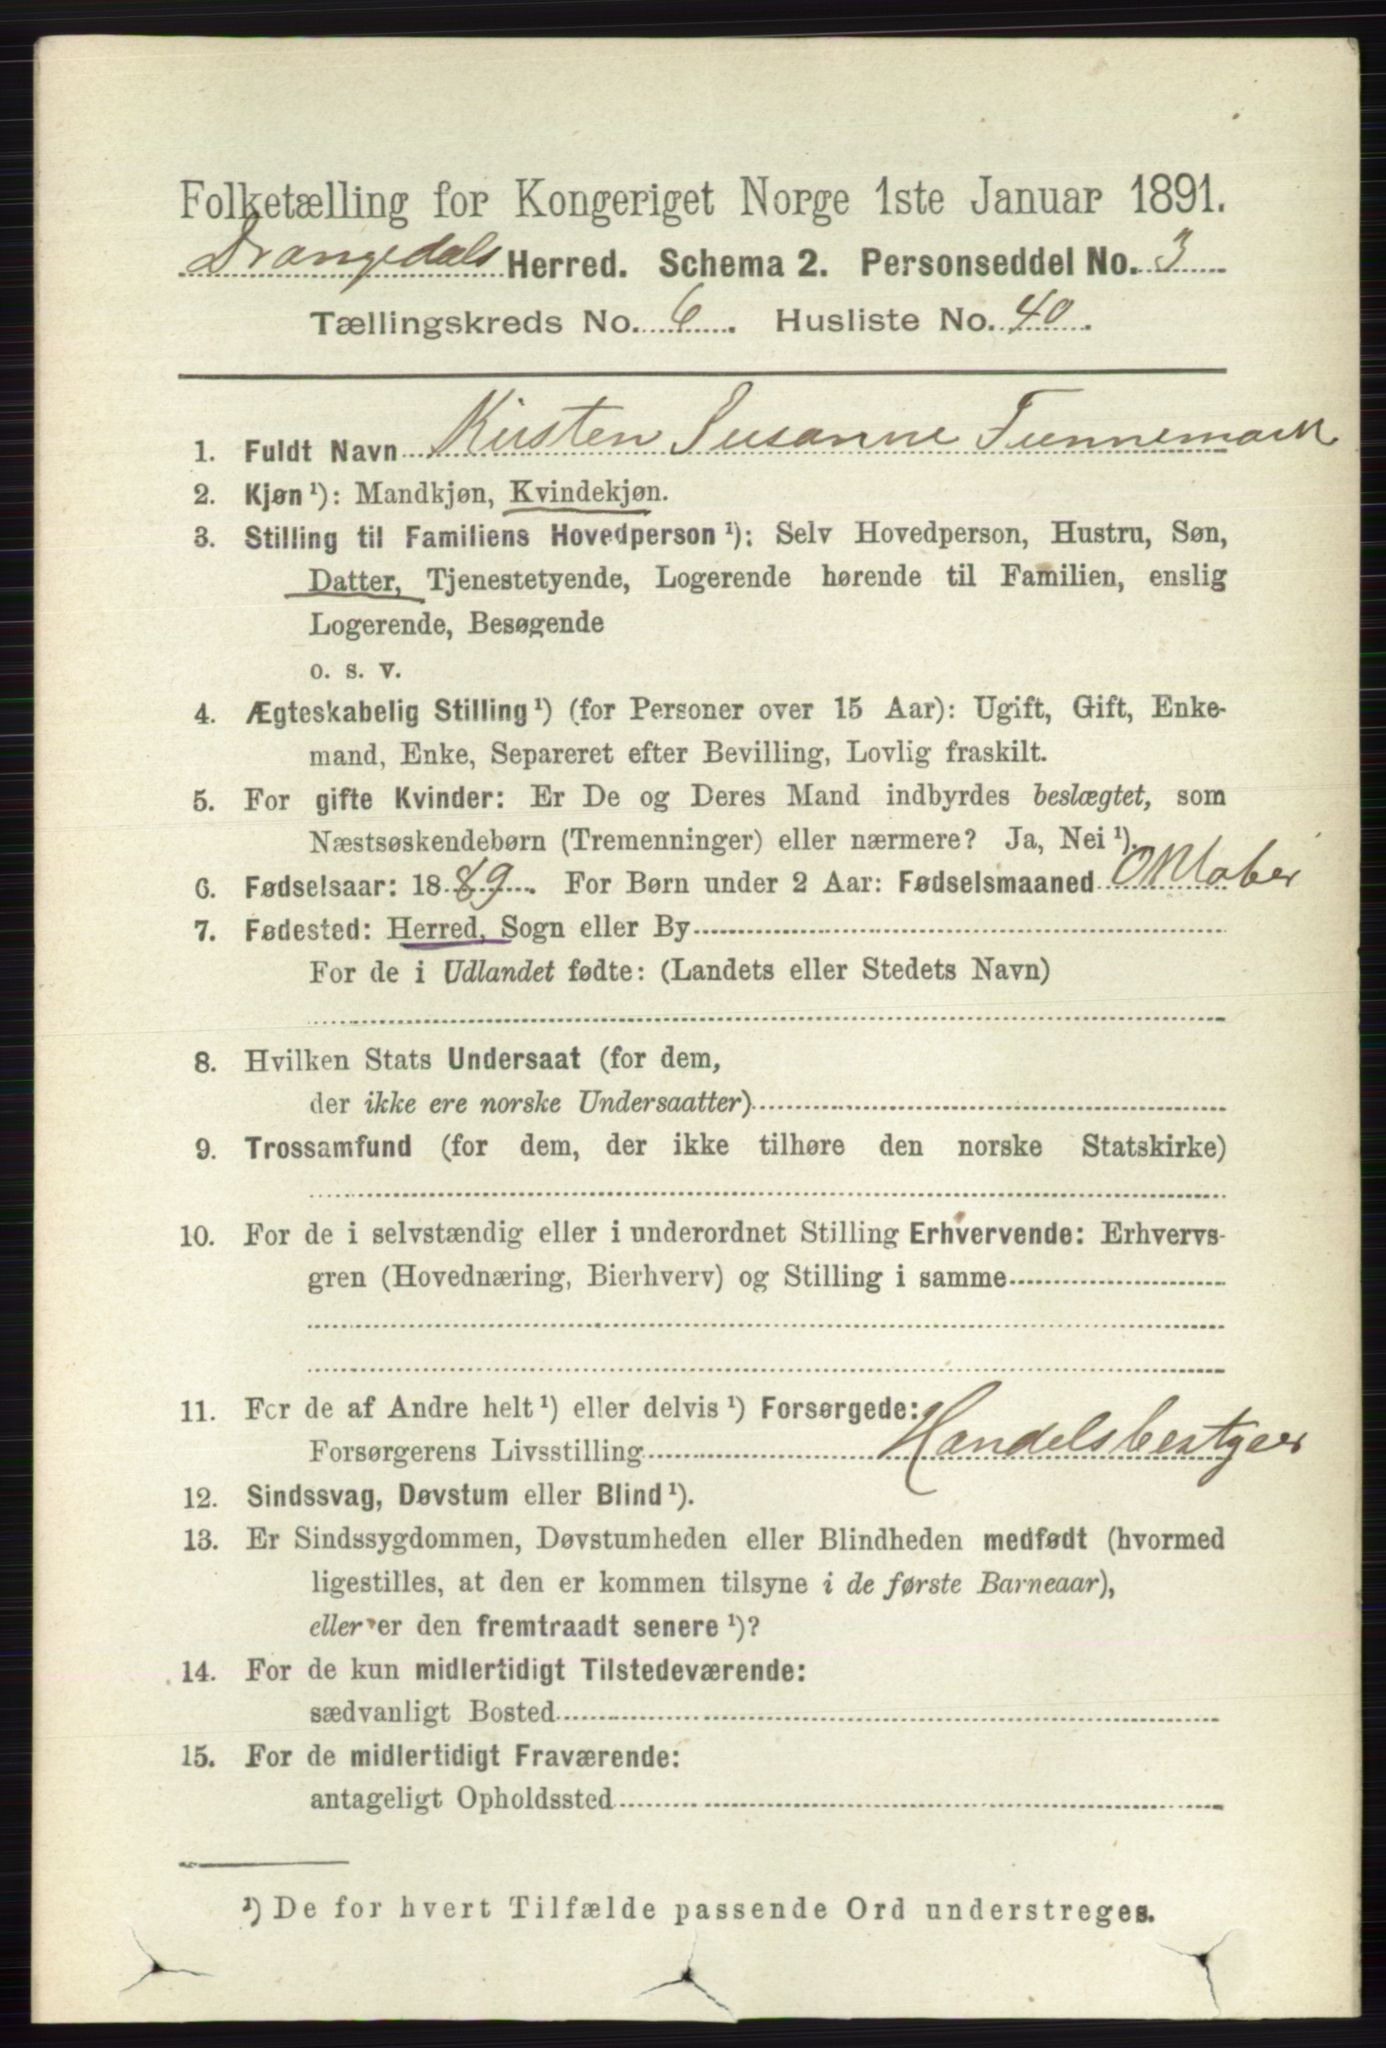 Folketælling for Kongeriget Norge 1ste Januar 1891.
Drangedals Herred. Schema 2. Personseddel No. 3
Tællingskreds No. 6. Husliste No. 40.
1. Fuldt Navn Kirsten Susanne Tunnemark
2. Kjøn ¹): Mandkjøn, Kvindekjøn.
3. Stilling til Familiens Hovedperson ¹): Selv Hovedperson, Hustru, Søn,
Datter, Tjenestetyende, Logerende hørende til Familien, enslig
Logerende, Besøgende
o. s. v.
4. Ægteskabelig Stilling ¹) (for Personer over 15 Aar): Ugift, Gift, Enke-
mand, Enke, Separeret efter Bevilling, Lovlig fraskilt.
5. For gifte Kvinder: Er De og Deres Mand indbyrdes beslægtet, som
Næstsøskendebørn (Tremenninger) eller nærmere? Ja, Nei ¹).
6. Fødselsaar: 1889. For Børn under 2 Aar: Fødselsmaaned Oktober
7. Fødested: Herred, Sogn eller By
For de i Udlandet fødte: (Landets eller Stedets Navn)
8. Hvilken Stats Undersaat (for dem,
der ikke ere norske Undersaatter)
9. Trossamfund (for dem, der ikke tilhøre den norske Statskirke)
10. For de i selvstændig eller i underordnet Stilling Erhvervende: Erhvervs-
gren (Hovednæring, Bierhverv) og Stilling i samme
11. For de af Andre helt ¹) eller delvis ¹) Forsørgede:
Forsørgerens Livsstilling Handelsbestyrer
12. Sindssvag, Døvstum eller Blind ¹).
13. Er Sindssygdommen, Døvstumheden eller Blindheden medfødt (hvormed
ligestilles, at den er kommen tilsyne i de første Barneaar),
eller er den fremtraadt senere ¹)?
14. For de kun midlertidigt Tilstedeværende:
sædvanligt Bosted
15. For de midlertidigt Fraværende:
antageligt Opholdssted
¹) De for hvert Tilfælde passende Ord understreges.